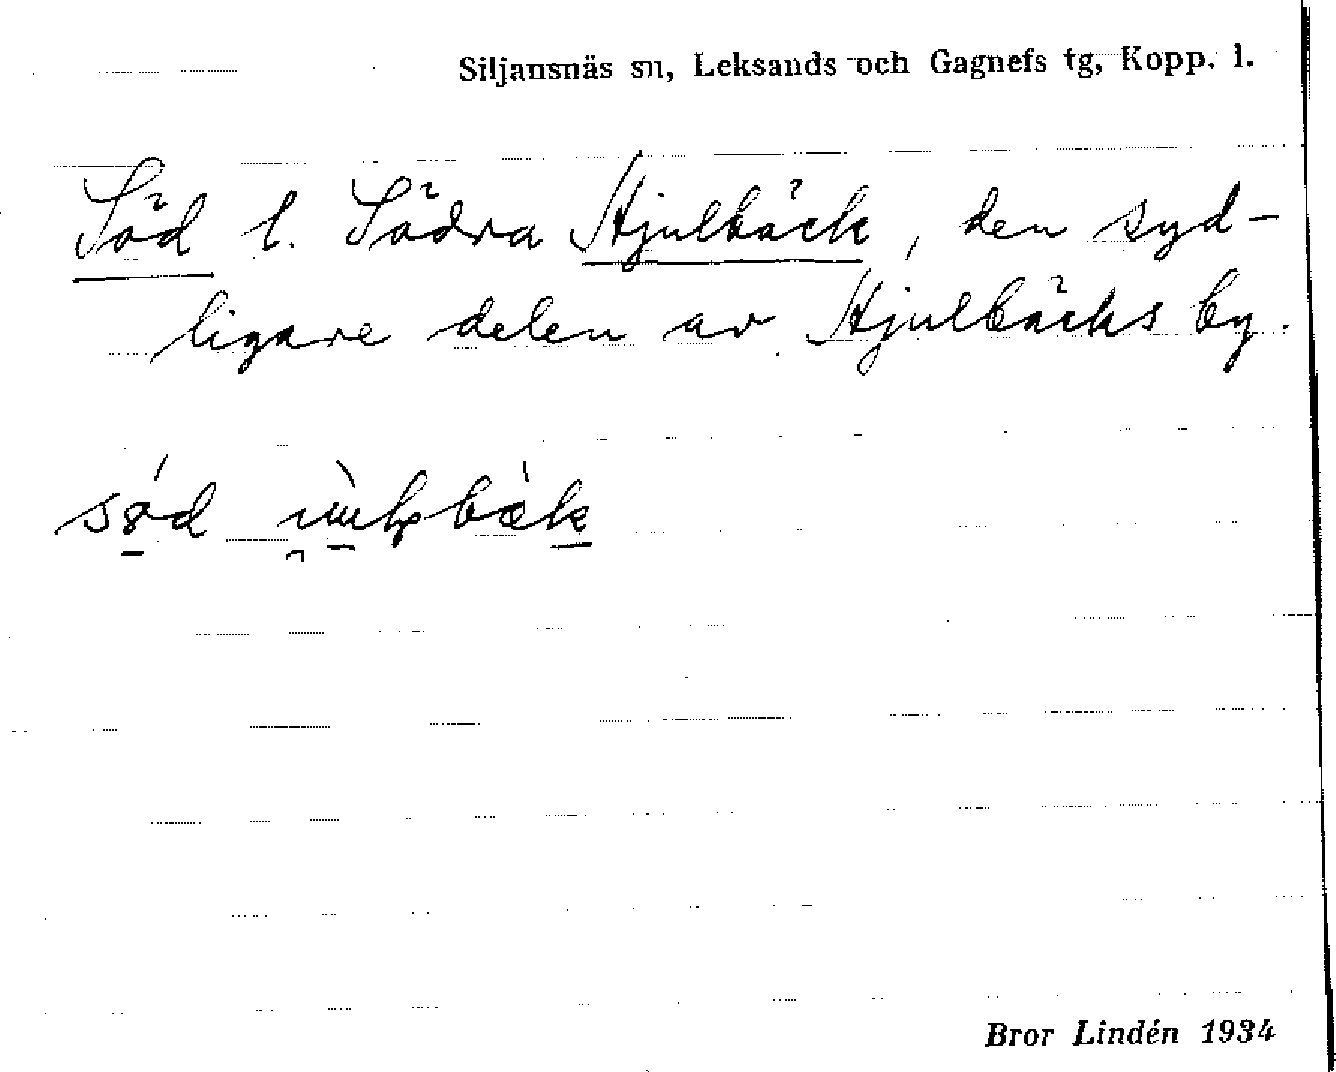 Siljansnäs sn, Leksands och Gagnefs tg, Kopp. l.
Söd l. Södra Hjulbäck, den syd-
ligare delen av Hjulbäcks by.
Bror Lindén 1934